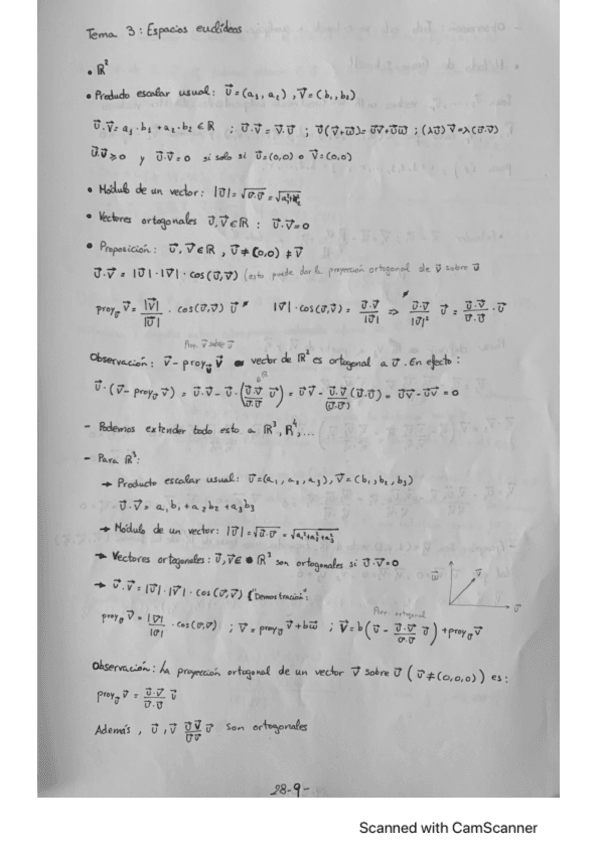 Tema 3: Espacios euclídeos
• ℝ²
• Producto escalar usual: u⃗=(a₁, a₂), v⃗=(b₁, b₂)
u⃗·v⃗ = a₁·b₁ + a₂·b₂ ∈ ℝ ; u⃗·v⃗ = v⃗·u⃗ ; u⃗(v⃗+w⃗) = u⃗v⃗+u⃗w⃗ ; (λu⃗)v⃗=λ(u⃗·v⃗)
u⃗·v⃗ ≥ 0 y u⃗·v⃗=0 si solo si u⃗=(0,0) o v⃗=(0,0)
• Módulo de un vector: |u⃗| = √(u⃗·u⃗) = √(a₁²+a₂²)
• Vectores ortogonales u⃗, v⃗ ∈ ℝ : u⃗·v⃗=0
• Proposición: u⃗, v⃗ ∈ ℝ, u⃗ ≠ (0,0) ≠ v⃗
u⃗·v⃗ = |u⃗|·|v⃗|·cos(u⃗,v⃗) (esto puede dar la proyección ortogonal de v⃗ sobre u⃗
proy_u⃗ v⃗ = |v⃗|/|u⃗| · cos(u⃗,v⃗) u⃗ * |v⃗|·cos(u⃗,v⃗) = u⃗·v⃗/|u⃗| ⇒ u⃗·v⃗/|u⃗|² u⃗ = u⃗·v⃗/u⃗·u⃗ · u⃗
Proy. v⃗ sobre u⃗
Observación: v⃗ - proy_u⃗ v⃗ vector de ℝ² es ortogonal a u⃗. En efecto:
u⃗·(v⃗ - proy_u⃗ v⃗) = u⃗·v⃗ - u⃗·(u⃗·v⃗/u⃗·u⃗ u⃗) = u⃗v⃗ - u⃗·v⃗/(u⃗·u⃗) (u⃗·u⃗) = u⃗v⃗ - u⃗v⃗ = 0
- Podemos extender todo esto a ℝ³, ℝ⁴, ...
- Para ℝ³:
→ Producto escalar usual: u⃗=(a₁, a₂, a₃), v⃗=(b₁, b₂, b₃)
u⃗·v⃗ = a₁b₁ + a₂b₂ + a₃b₃
→ Módulo de un vector: |u⃗| = √(u⃗·u⃗) = √(a₁²+a₂²+a₃²)
→ Vectores ortogonales: u⃗, v⃗ ∈ ℝ³ son ortogonales si u⃗·v⃗=0
→ u⃗·v⃗ = |u⃗|·|v⃗|·cos(u⃗,v⃗) (Demostración:
w⃗ v⃗ u⃗
Proy. ortogonal
proy_u⃗ v⃗ = |v⃗|/|u⃗| · cos(u⃗,v⃗) ; v⃗ = proy_u⃗ v⃗ + bw⃗ ; v⃗ = b(u⃗ - u⃗·v⃗/u⃗·u⃗ u⃗) + proy_u⃗ v⃗
Observación: La proyección ortogonal de un vector v⃗ sobre u⃗ (u⃗ ≠ (0,0,0)) es:
proy_u⃗ v⃗ = u⃗·v⃗/u⃗·u⃗ u⃗
Además, u⃗, v⃗ u⃗v⃗/u⃗v⃗ u⃗ son ortogonales
28-9-
Scanned with CamScanner